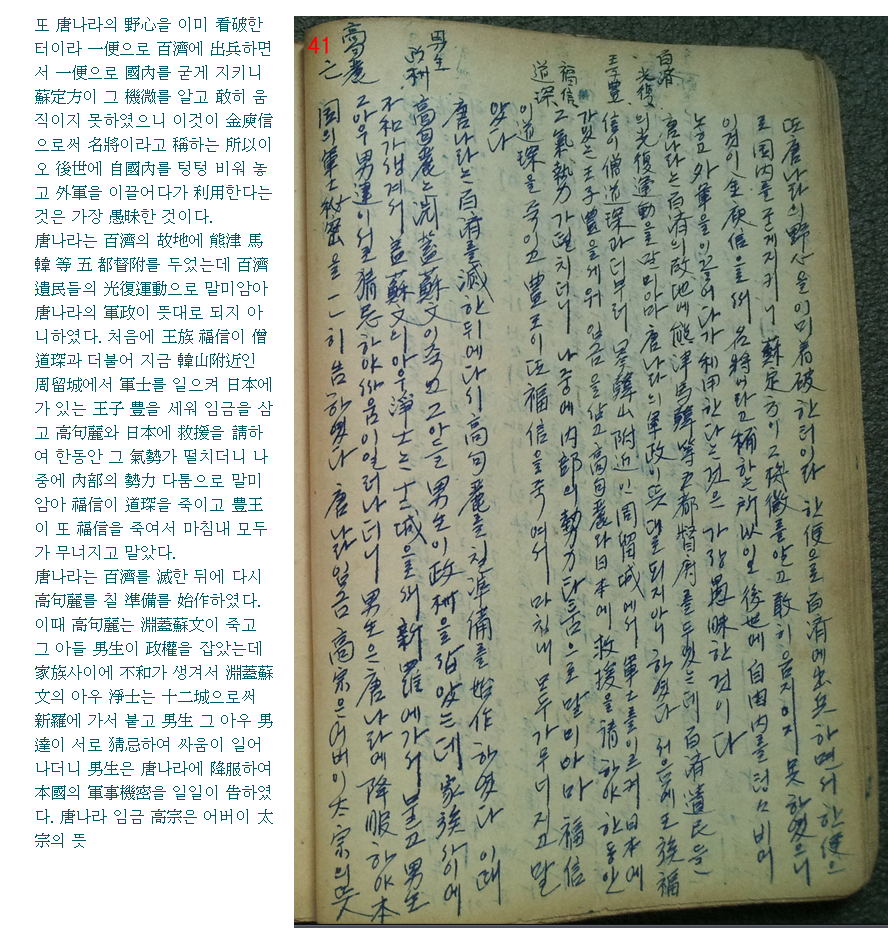 또 唐나라의 野心을 이미 看破한
터이라 一便으로 百濟에 出兵하면
서 一便으로 國內를 굳게 지키니
蘇定方이 그 機微를 알고 敢히 움
직이지 못하였으니 이것이 金庾信
으로써 名將이라고 稱하는 所以이
오 後世에 自國內를 텅텅 비워 놓
고 外軍을 이끌어다가 利用한다는
것은 가장 愚昧한 것이다.
唐나라는 百濟의 故地에 熊津 馬
韓 等 五 都督附를 두었는데 百濟
遺民들의 光復運動으로 말미암아
唐나라의 軍政이 뜻대로 되지 아
니하였다. 처음에 王族 福信이 僧
道琛과 더불어 지금 韓山附近인
周留城에서 軍士를 일으켜 日本에
가 있는 王子 豊을 세워 임금을 삼
고 高句麗와 日本에 救援을 請하
여 한동안 그 氣勢가 떨치더니 나
중에 內部의 勢力 다툼으로 말미
암아 福信이 道琛을 죽이고 豊王
이 또 福信을 죽여서 마침내 모두
가 무너지고 말았다.
唐나라는 百濟를 滅한 뒤에 다시
高句麗를 칠 準備를 始作하였다.
이때 高句麗는 淵蓋蘇文이 죽고
그 아들 男生이 政權을 잡았는데
家族사이에 不和가 생겨서 淵蓋蘇
文의 아우 淨士는 十二城으로써
新羅에 가서 붙고 男生 그 아우 男
達이 서로 猜忌하여 싸움이 일어
나더니 男生은 唐나라에 降服하여
本國의 軍事機密을 일일이 告하였
다. 唐나라 임금 高宗은 어버이 太
宗의 뜻
41
또 唐나라의 野心을 이미 看破한 터이라 한便으로 百濟에 出兵하면서 한便으
로 國內를 굳게 지키니 蘇定方이 그 機微를 알고 敢히 움지이지 못하였으니
이것이 金庾信을 써 名將이라고 稱하는 所以일 後世에 自國內를 텅텅 비여
놓고 外軍을 이끌어다가 利用한다는 것은 가장 愚昧한 것이다
百濟
光復
唐나라는 百濟의 故地에 熊津 馬韓 等 五 都督府를 두었는데 百濟遺民들
의 光復運動을 말미아마 唐나라의 軍政이 뜻대로 되지 아니하였다 처음에 王族 福
王子豊
信이 僧道琛과 더부러 韓山附近인 周留城에서 軍士를 이르켜 日本에
가있는 王子豊을 세워 임금을 삼고 高句麗와 日本에 救援을 請하야 한동안
福信
道琛
그 氣勢가 떨치더니 나중에 內部의 勢力다툼으로 말미아마 福信
이 道琛을 죽이고 豊王이 또 福信을 죽여서 마침내 모두가 무너지고 말
았다
唐나라는 百濟를 滅한 뒤에 다시 高句麗를 칠 準備를 始作하였다 이때
男生
高句麗는 淵蓋蘇文이 죽고 그아들 男生이 政權을 잡았는데 家族사이에
不和가 생겨서 蓋蘇文의 아우 淨士는 十二城으로써 新羅에 가서 붙고 男生
高麗
亡
그아우 男建이 서로 猜忌하야 싸움이 일러나더니 男生은 唐나라에 降服하야 本
國의 軍士秘密을 一一히 告하였다 唐나라 임금 高宗은 어버이 太宗의 뜻